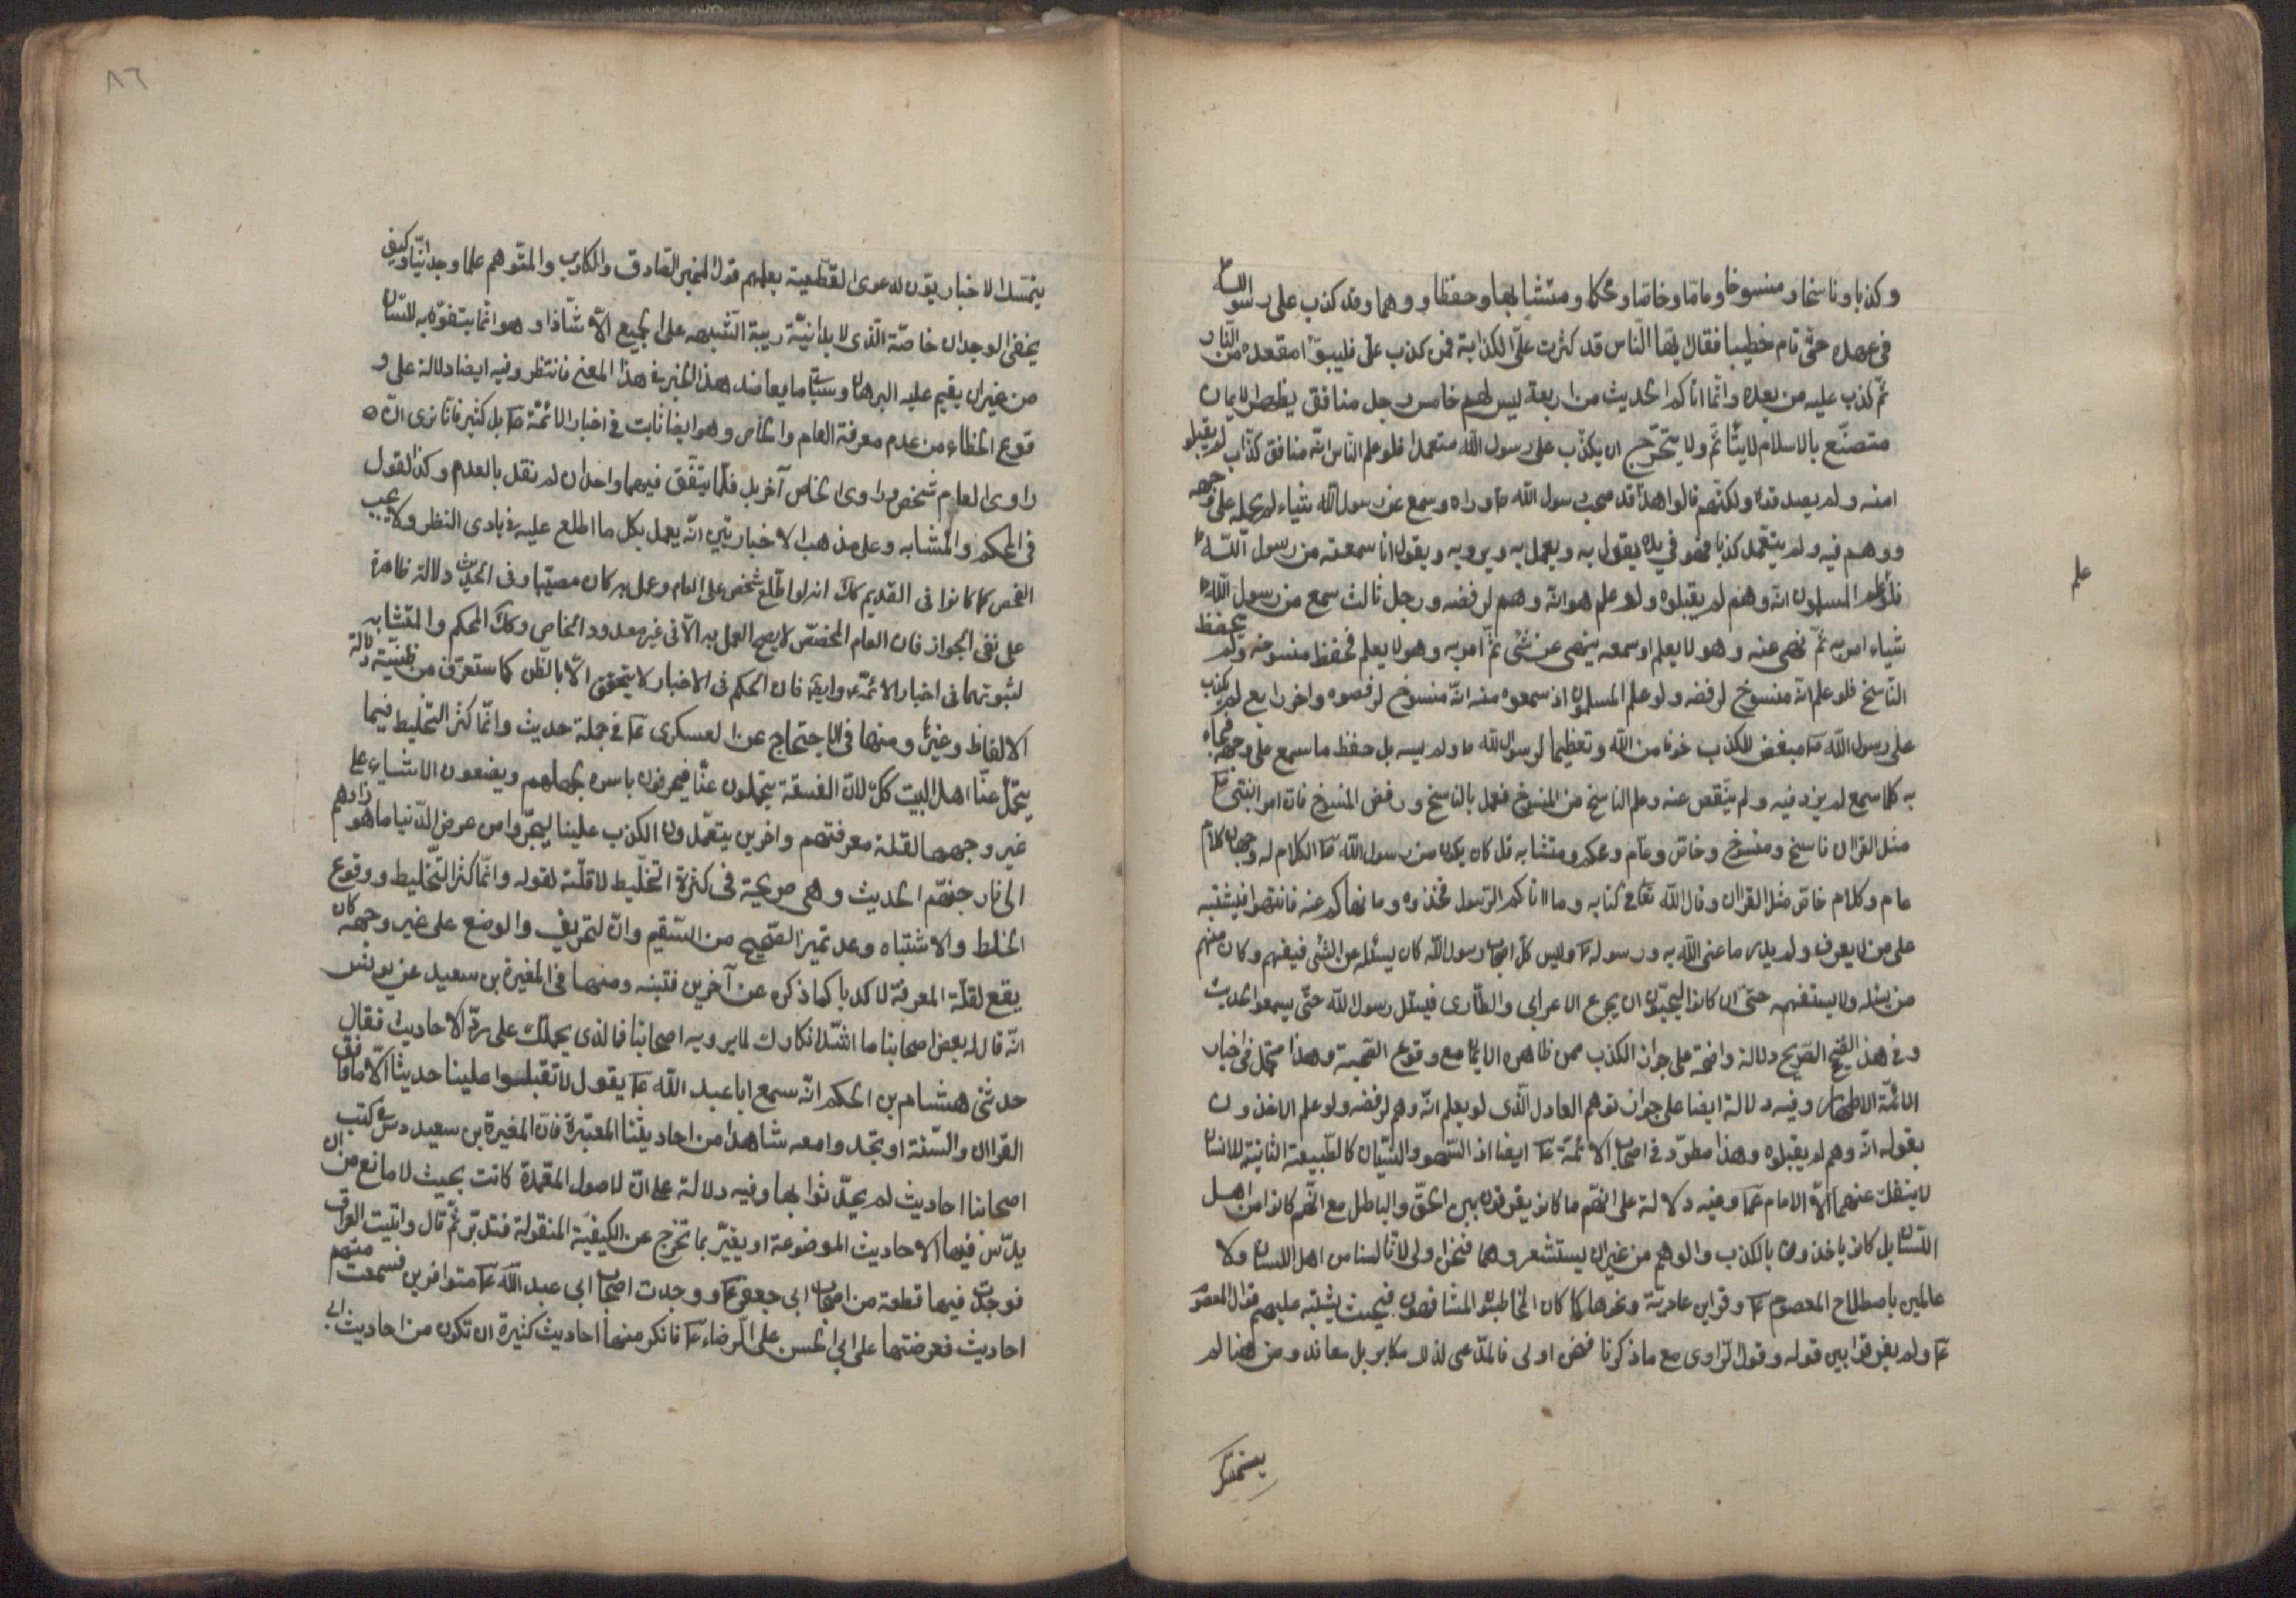 وكذبا وناسخا ومنسوخا وعامّا وخاصّا ومحكما ومتشابها وحفظا ووهما وقد كذب على رسول الله ص
فى عهده حتّى قام خطيبا فقال ايّها النّاس قد كثرت علىّ الكذابة فمن كذب علىّ فليتبوّأ مقعده من النّار
ثمّ كذب عليه من بعده وانّما اتاكم الحديث من اربعة ليس لهم خامس رجل منافق يظهر الايمان
متصنّع بالاسلام لا يتأثّم ولا يتحرّج ان يكذّب على رسول الله متعمدا فلو علم النّاس انّه منافق كذّاب لم يقبلو
امنه ولم يصدقوه ولكنّهم قالوا هذا قد صحب رسول الله ص وراه وسمع عن رسول الله شياء لم يحمله على وجهه
ووهم فيه ولم يتعمّد كذبا فهو في يده يقول به ويعمل به ويرويه ويقول انا سمعته من رسول اللّه ص
فلو علم المسلمون انّه وهم لم يقبلوه ولو علم هو انّه وهم لرفضه ورجل ثالث سمع من رسول اللّه ص
علم
شياء امر به ثمّ نهى عنه وهو لا يعلم او سمعه ينهى عن شئ ثمّ امر به وهو لا يعلم فحفظ منسوخه ولم يحفظ
النّاسخ فلو علم انّه منسوخ لرفضه ولو علم المسلمون اذ سمعوه منه انّه منسوخ لرفضوه واخر رابع لم يكذب
على رسول الله ص مبغض للكذب خوفا من الله وتعظيما لرسول الله ص ولم يسه بل حفظ ما سمع على وجهه فجاء
به كما سمع لم يزد فيه ولم ينقص عنه وعلم الناسخ من المنسوخ فعمل بالناسخ ورفض المنسوخ فان امر النبّى ص
مثل القران ناسخ ومنسوخ وخاصّ وعام ومحكم ومتشابه قد كان يكون من رسول الله ص الكلام له وجهان كلام
عام وكلام خاصّ مثل القران وقال الله تعالى فى كتابه وما اتاكم الرّسول فخذوه وما نهاكم عنه فانتهوا فيشتبه
على من لا يعرف ولم يدر ما عنى الله به ورسوله ص وليس كلّ اصحاب رسول الله كان يسئله عن الشّئ فيفهم وكان منهم
من يسئله ولا يستفهمه حتّى ان كانوا ليحبّون ان يجئ الاعرابى والطّارى فيسئل رسول الله حتّى يسمعوا الحديث
وفى هذا الصّحيح الصّريح دلالة واضحة على جواز الكذب ممن ظاهره الايمان مع وقوع الصّحبة وهذا محتمل فى اخبار
الائمّة الاطهار وفيه دلالة ايضا على جواز توهم العادل الّذى لو يعلم انّه وهم لرفضه ولو علم الاخذون
بقوله انّه وهم لم يقبلوه وهذا مطرّد فى اصحاب الائمّة ع ايضا اذ السّهو والنّسيان كالطّبيعة الثانية للانسان
لا ينفك عنهما الّا الامام ع وفيه دلالة على انّهم ما كانوا يفرقون بين الحقّ والباطل مع انّهم كانوا من اهل
اللسان بل كانوا ياخذون بالكذب والوهم من غير ان يستشعروهما فنحن اولى لانّا لسنا من اهل اللسان ولا
عالمين باصطلاح المعصوم ع وقراين عاديّة ونحوها كما كان المخاطبون المشافهون فحيث يشتبه عليهم قول المعصوم
ع ولم يفرقوا بين قوله وقول الرّاوى مع ما ذكرنا فنحن اولى فالمدّعى لذلك مكابر بل معاند ومن هنا لم
يتمسّك
٨٦
يتمسّك الاخباريّون لدعوى القطعية بعلمهم قول المخبر الصّادق والكاذب والمتوهم علما وجدانيّا وكيف
يخفى الوجدان خاصّة الّذى لا يدانيّه ريبة الشّبهه على الجميع الّا شاذا وهو انّما يتفوّه به للسان
من غير ان يقيم عليه البرهان وسياتى ما يعاضد هذا الخبر فى هذا المعنى فانتظر وفيه ايضا دلالة على و
قوع الخطاء من عدم معرفة العام والخاص وهو ايضا ثابت فى اخبار الائمّة ع بل كثير فانّا نرى انّ
راوى العام شخص وراوى الخاص آخر بل قلّما يتفّق فيهما واحد ان لم نقل بالعدم وكذا القول
فى المحكم والمتشابه وعلى مذهب الاخباريّين انّه يعمل بكل ما اطلع عليه فى بادى النظر ولا يجب
الفحص كما كانوا فى القديم كك انه لو اطّلع شخص على العام وعمل به كان مصيبا وفى الحديث دلالة ظاهرة
على نفى الجواز فان العام المخصّص لا يصح العمل به الّا فى غير معدود الخاص وكك المحكم والمتشابه
لثبوتهما فى اخبار الائمّة ع وايضا فان الحكم فى الاخبار لا يتحقق الّا بالظن كما ستعرّف من ظنّيّة دلالة
الالفاظ وغيرها ومنها فى الاحتجاج عن العسكرى ع فى جملة حديث وانّما كثر التّخليط فيما
يتحمّل عنّا اهل البيت كلّ لانّ الفسقة يتحملون عنّا فيحرفون باسره بجهلهم ويضعون الاشياء على
غير وجهها لقلة معرفتهم واخرين يتعمّدون الكذب علينا ليجرّوا من عرض الدّنيا ما هو زادهم
الى نار جهنّم الحديث وهى صريحة فى كثرة التخليط لا قلّته لقوله وانّما كثر التّخليط ووقوع
الخلط والاشتباه وعدم تميز الصّحيح من السّقيم وانّ التحريف والوضع على غير وجهه كان
يقع لقلّة المعرفة لا كذبا كما ذكره عن آخرين فتبنه ومنها فى المغيرة بن سعيد عن يونس
انّه قال له بعض اصحابنا ما اشدّ انكارك لما يرويه اصحابنا فما الذى يحملك على ردّ الاحاديث فقال
حدثنى هشام بن الحكم انّه سمع ابا عبد الله ع يقول لا تقبلوا علينا حديثا الّا ما وافق
القران والسّنة او تجدوا معه شاهدا من احاديثنا المعتبرة فان المغيرة بن سعيد دسّ فى كتب
اصحابنا احاديث لم يحدّثوا بها وفيه دلالة على انّ الاصول المعتمدة كانت بحيث لا مانع من ان
يدسّ فيها الاحاديث الموضوعة او يغيّر بما تخرج عن الكيفيّة المنقولة فتدبّر ثمّ قال واتيت العراق
فوجدت فيها قطعة من اصحاب ابى جعفر ع ووجدت اصحاب ابى عبد الله ع متوافرين فسمعت منهم
احاديث فعرضتها على ابى الحسن على الرّضاء ع فانكر منها احاديث كثيرة ان تكون من احاديث ابى